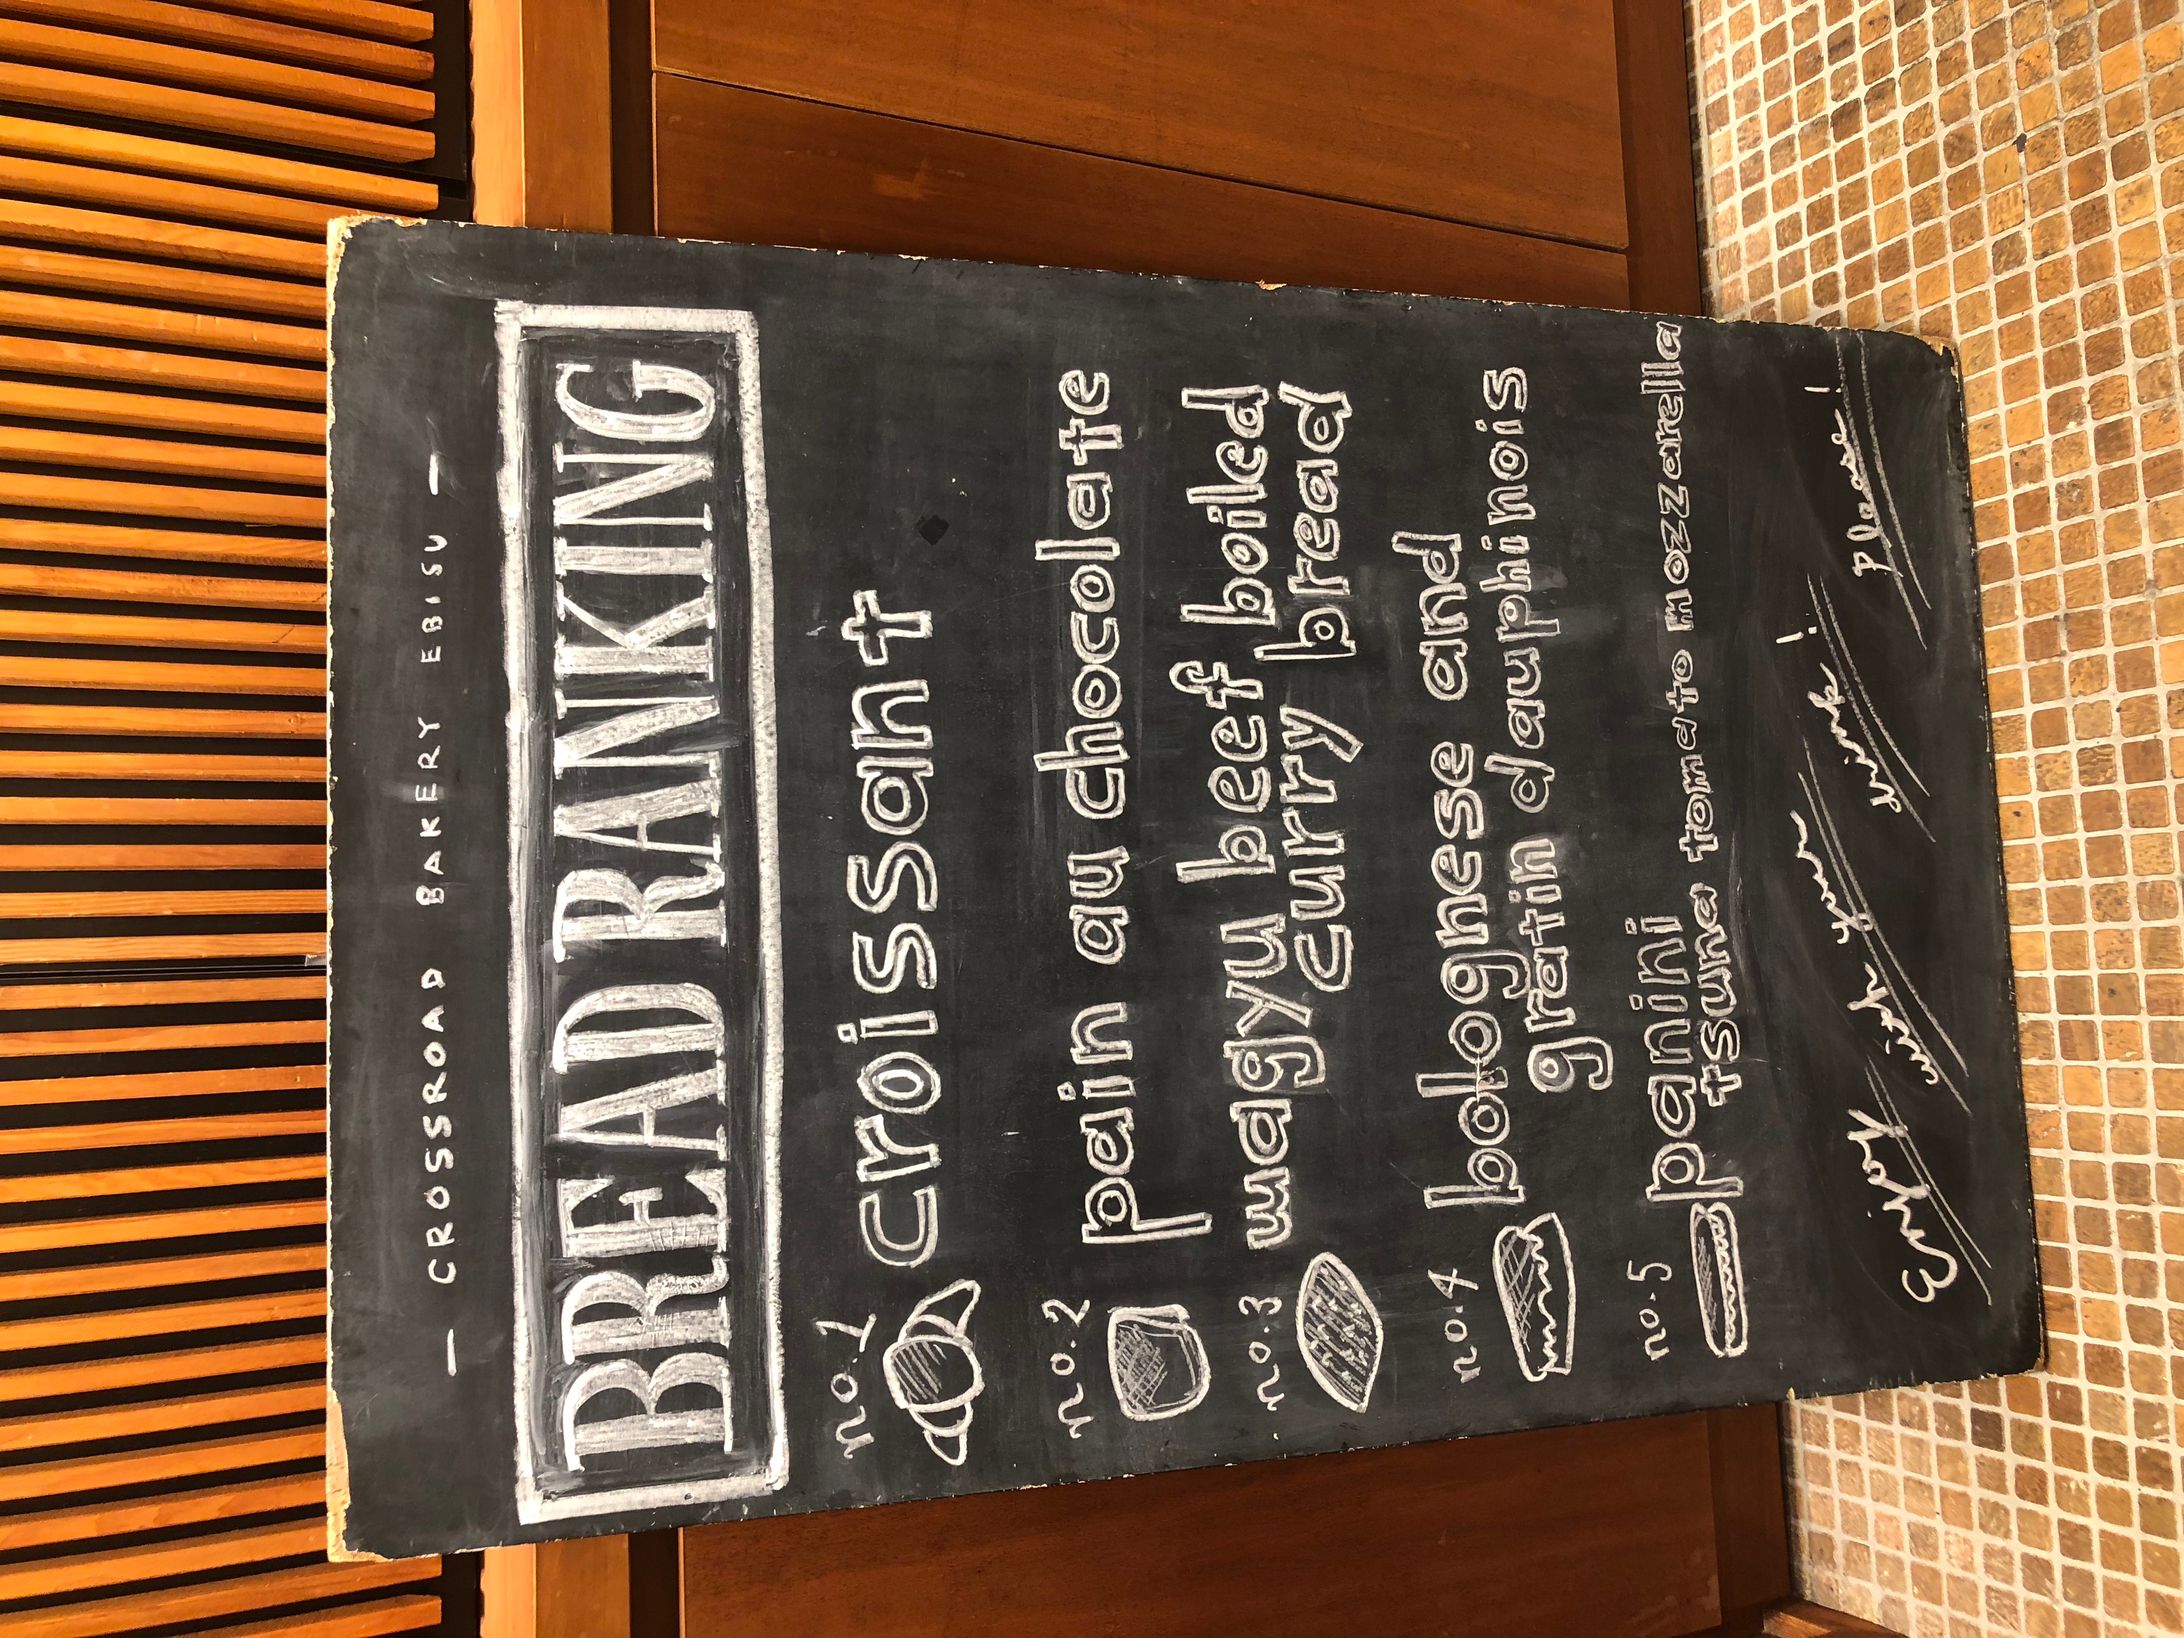 — CROSSROAD BAKERY EBISU —
BREAD RANKING
no.1
croissant
no.2
pain au chocolate
no.3
wagyu beef boiled
curry bread
no.4
bolognese and
gratin dauphinois
no.5
panini
tsuna tomato mozzarella
Enjoy with your drink! please!